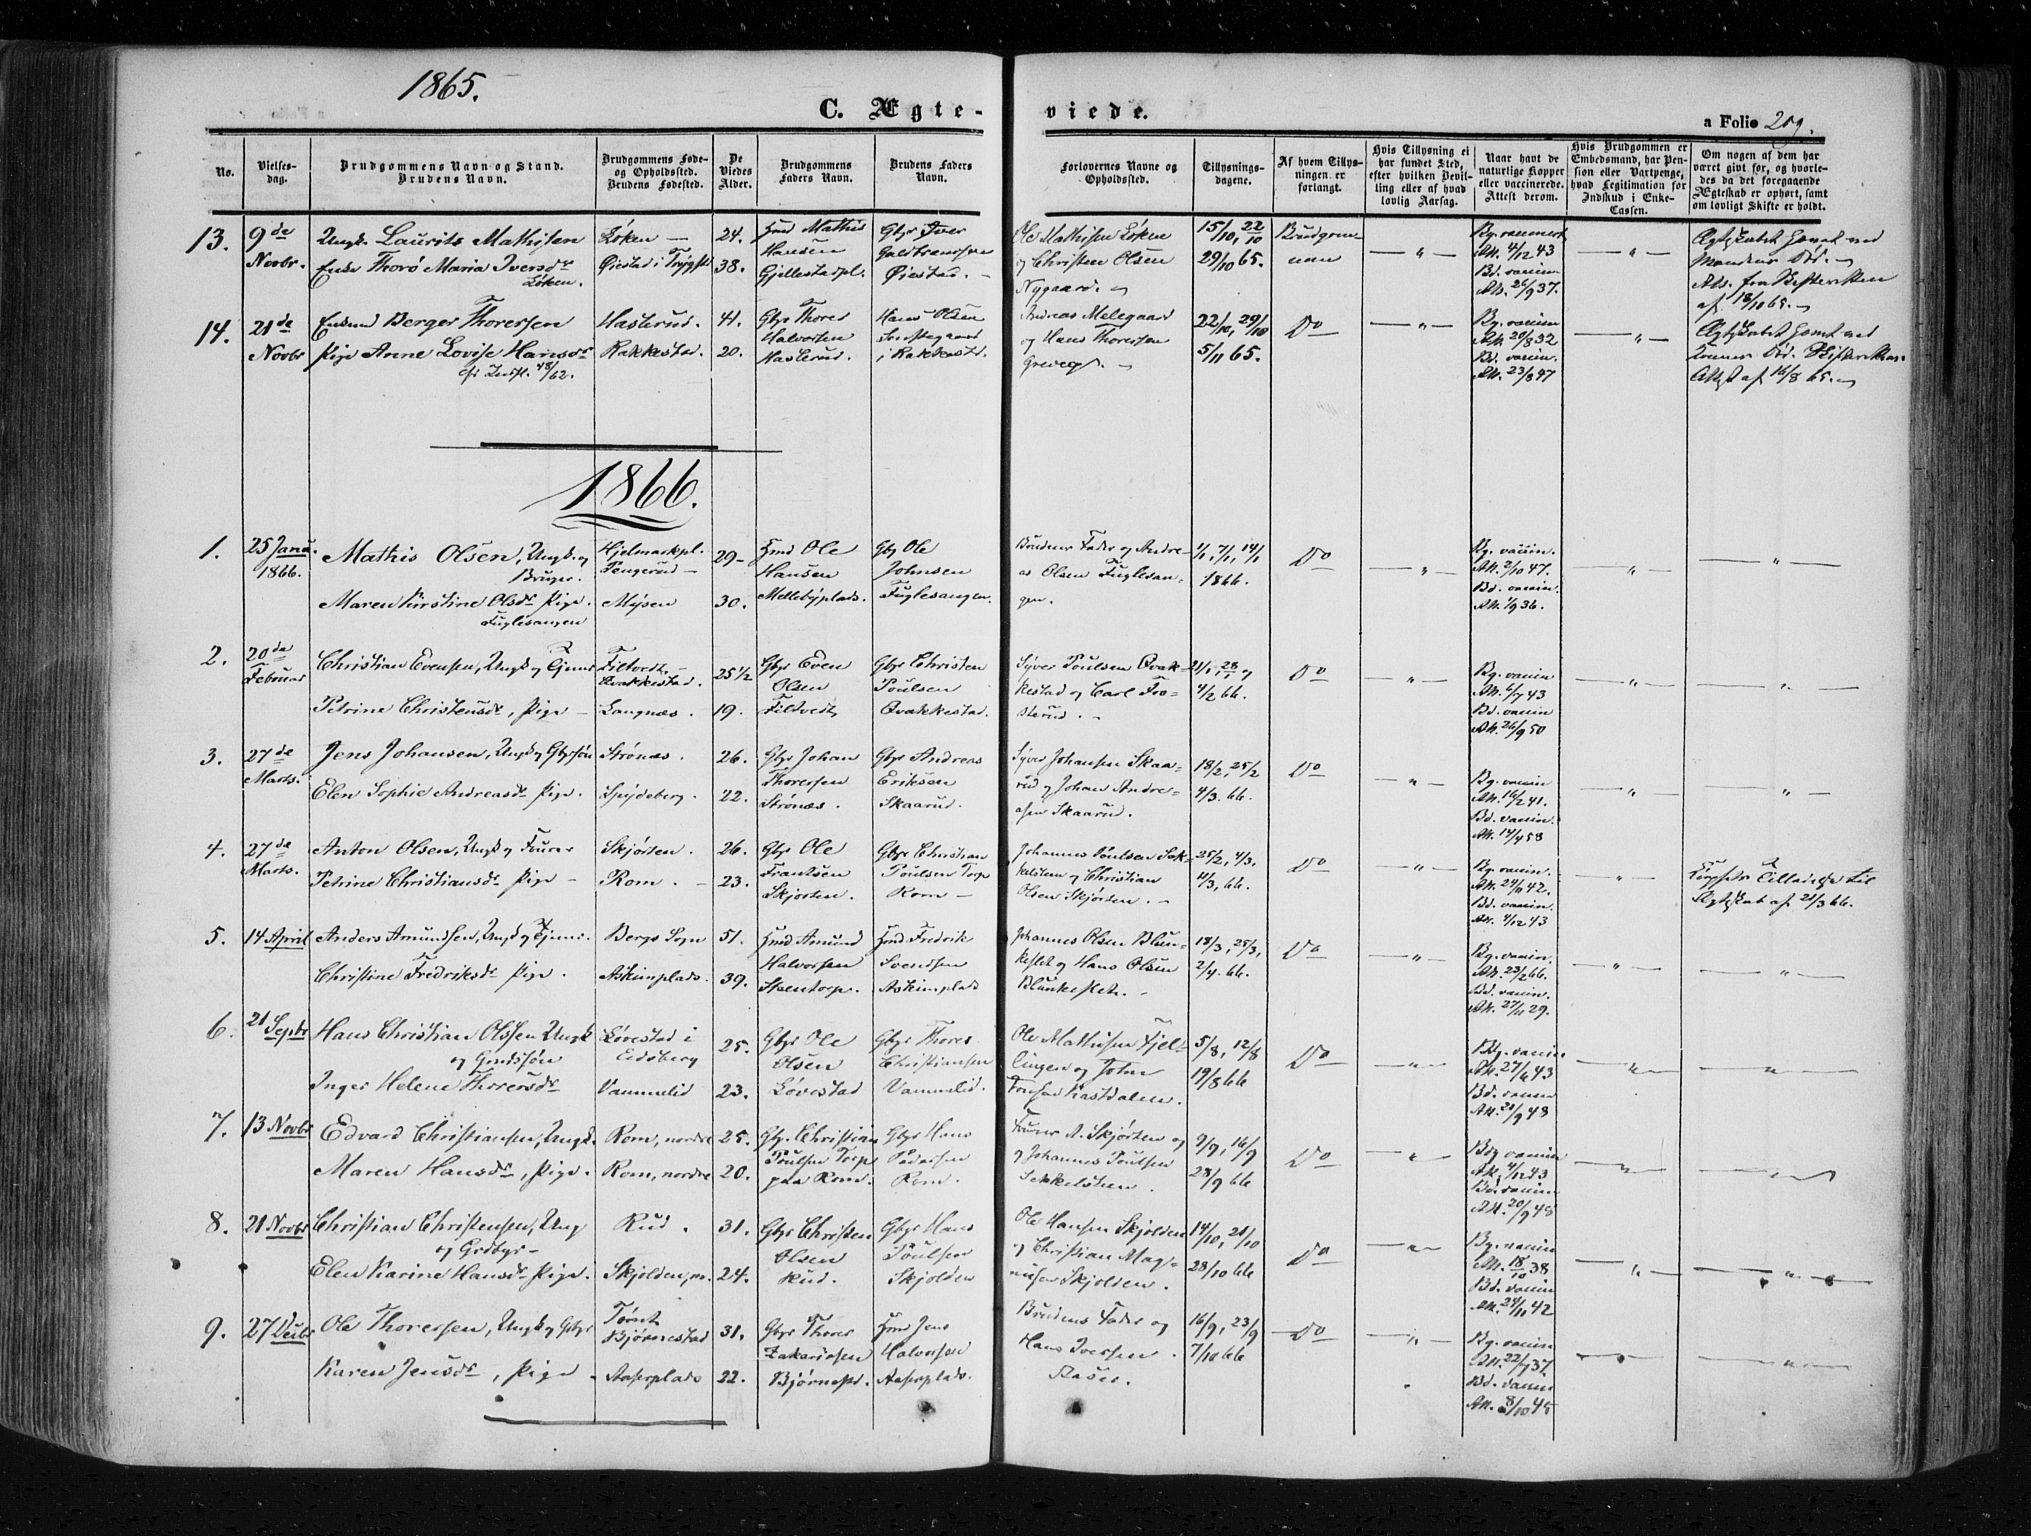 1865.
C. Ægteviede.
a Folio 209.
No.
Vielsesdag.
Brudgommens Navn og Stand. Brudens Navn.
Brudgommens Føde- og Opholdssted. Brudens Fødested.
De Viedes Alder.
Brudgommens Faders Navn.
Brudens Faders Navn.
Forlovernes Navne og Opholdssted.
Tillysningsdagene.
Af hvem Tillysningen er forlangt.
Hvis Tillysning ei har fundet Sted, efter hvilken Bevilling eller af hvad lovlig Aarsag.
Naar havt de naturlige Kopper eller vaccinerede. Attest derom.
Hvis Brudgommen er Embedsmand, har Pension eller Vartpenge, hvad Legitimation for Indskud i Enke-Cassen.
Om nogen af dem har været gift før, og hvorledes da det foregaaende Ægteskab er ophørt, samt om lovligt Skifte er holdt.
13. 9de Novbr.
Ungk. Laurits Mathisen
Enke Thorø Maria Iversdr
Løken.
Løken —
Øiestad i Trygst
24.
38.
Hmd Mathis
Hansen
Gjellestadpl.
Gbr Iver
Øiestad. —
Ole Mathisen Løken
og Christen Olsen
Nygaard.
15/10, 22/10
29/10 65.
Brudgommen
— " —
4/12 43
26/9 37.
— " —
af 18/10 65.
14. 21de Novbr
Enkmd Berger Thorersen
Pige Anne Lovise Hansdr
Hasterud.
Rakkestad.
41.
20.
Gbr Thorer
Halvorsen
Hasterud.
Hans Olsen
i Rakkestad.
Andreas Melegaard
og Hans Thorersen
Greveg.
22/10, 29/10
5/11 65.
Do
— " —
20/8 32
23/8 47
— " —
Attest af 16/8 65.
1866.
1. 25 Janu. 1866.
Mathis Olsen, Ungk. og
Bruger.
Maren Kirstine Olsdr Pige.
Fuglesangen
Hjelmarkpl.
Pengerud —
Mysen
29 —
30.
Hmd Ole
Hansen
Mellebyplads.
Gbr Ole
Johnsen
Fuglesangen.
Brudens Fader og Andreas
Olsen Fuglesangen.
1/1, 7/1, 14/1
1866.
Do
— " —
Bg. vaccin.
Att. 2/10 47.
Bd. vaccin.
Att. 1/9 36.
— " —
— " —
2. 20de Februar
Christian Evensen, Ungk og Tjener
Petrine Christensdr, Pige —
Filtvedt,
Ovakkestad.
Langnæs.
25 1/2
19.
Gbr Even
Olsen
Filtvedt,
Gbr Christen
Poulsen
Ovakkestad.
Syver Poulsen Ovakkestad
og Carl Frosterud.
21/1, 28/1 og
4/2 66.
Do
— " —
Bg. vaccin
Att. 6/7 43
Bd. vaccin
Att. 26/9 50
— " —
— " —
3. 27de Marts.
Jens Johansen, Ungk og Gbrsøn
Elen Sophie Andreasdr Pige.
Strønæs.
Spydeberg.
26.
22.
Gbr Johan
Thorersen
Strønæs.
Gbr Andreas
Eriksen
Skaarud.
Syver Johansen Skaarud
og Johan Andreasen
Skaarud.
18/2, 25/2
4/3. 66.
Do
— " —
Bg. vaccin
Att. 16/2 41.
Bd. vaccin.
Att. 14/4 58
— " —
— " —
4. 27de Marts.
Anton Olsen, Ungk og Fourer
Petrine Christiansdr Pige —
Skjørten.
Rom. —
26.
23.
Gbr Ole
Frantsen
Skjorten.
Gbr Christian
Poulsen Torp
Rom —
Johannes Poulsen Sekkelsteen
og Christian
Olsen Skjørten. —
25/2, 4/3.
11/3, 66.
Do
— " —
Bg. vaccin.
Att. 24/11 42.
Bd. vaccin.
Att. 4/12 43
— " —
Tilladelse til
Ægteskab af 21/3 66.
5. 14 April
Anders Amundsen, Ungk og Tjener.
Christine Fredriksdr Pige.
Bergs Sogn
Askimplads.
51.
39.
Hmd Amund
Halvorsen
Steentorp.
Hmd Fredrik
Svendsen
Askimplads
Johannes Olsen Blankeslet
og Hans Olsen
Blankeslet. —
18/3, 25/3,
2/4. 66.
Do
— " —
Bg. vaccin.
Att. 23/2 66.
Bd. vaccin.
Att. 27/11 29.
— " —
— " —
6. 21 Septr
Hans Christian Olssen Ungk
og Gmdssøn
Inger Helene Thorersdr
Løvestad i
Eidsberg
Vammelid
25.
23.
Gbr Ole
Olsen
Løvestad
Gbr Thorer
Christiansen
Vammelid.
Ole Mathisen Fjellingen
og John
Kastdalen.
5/8, 12/8
19/8 66
Do
— " —
Bg. vaccin
Att. 27/6 43
Bd. vaccin
Att. 20/9 48
— " —
— " —
7. 13 Novbr
Edvard Christiansen, Ungk.
Maren Hansdr, Pige.
Rom, nordre
Rom, nordre
25.
20.
Gbr. Christian
Poulsen Torp
paa Rom.
Gbr Hans
Pedersen
Rom.
Fourer A. Skjørten og
Johannes Poulsen
Sekkelsteen.
9/9, 16/9
28/9 66
Do
— " —
Bg vaccin
Att. 4/12 43
Bd. vaccin
Att. 20/9 48
— " —
— " —
8. 21 Novbr
Christian Christensen, Ung
og Grdbgr —
Elen Karine Hansdr Pige.
Rud.
Skjolden, n.
31.
24.
Gbr Christen
Olsen
Rud.
Gbr Hans
Poulsen
Skjolden
Ole Hansen Skjolden
og Christian Magnusen
Skjolden.
14/10, 21/10
28/10 66
Do
— " —
Bg. vaccin
Att. 18/10 38
Bd. vaccin
Att. 24/11 42
— " —
— " —
9. 27 Decbr
Ole Thorersen, Ungk og Gbr
Karen Jensdr, Pige
Tømt
Bjørnestad
Aaserplads
31.
22.
Gbr Thorer
Zakariasen
Bjørnest.
Hmd Jens
Halvorsen
Aaserplads.
Brudens Fader og
Hans Iversen
Aaser.
16/9, 23/9
7/10 66
Do
— " —
Bg. vaccin
Att. 22/7 37.
Bd. vaccin
Att. 8/10 45
— " —
— " —